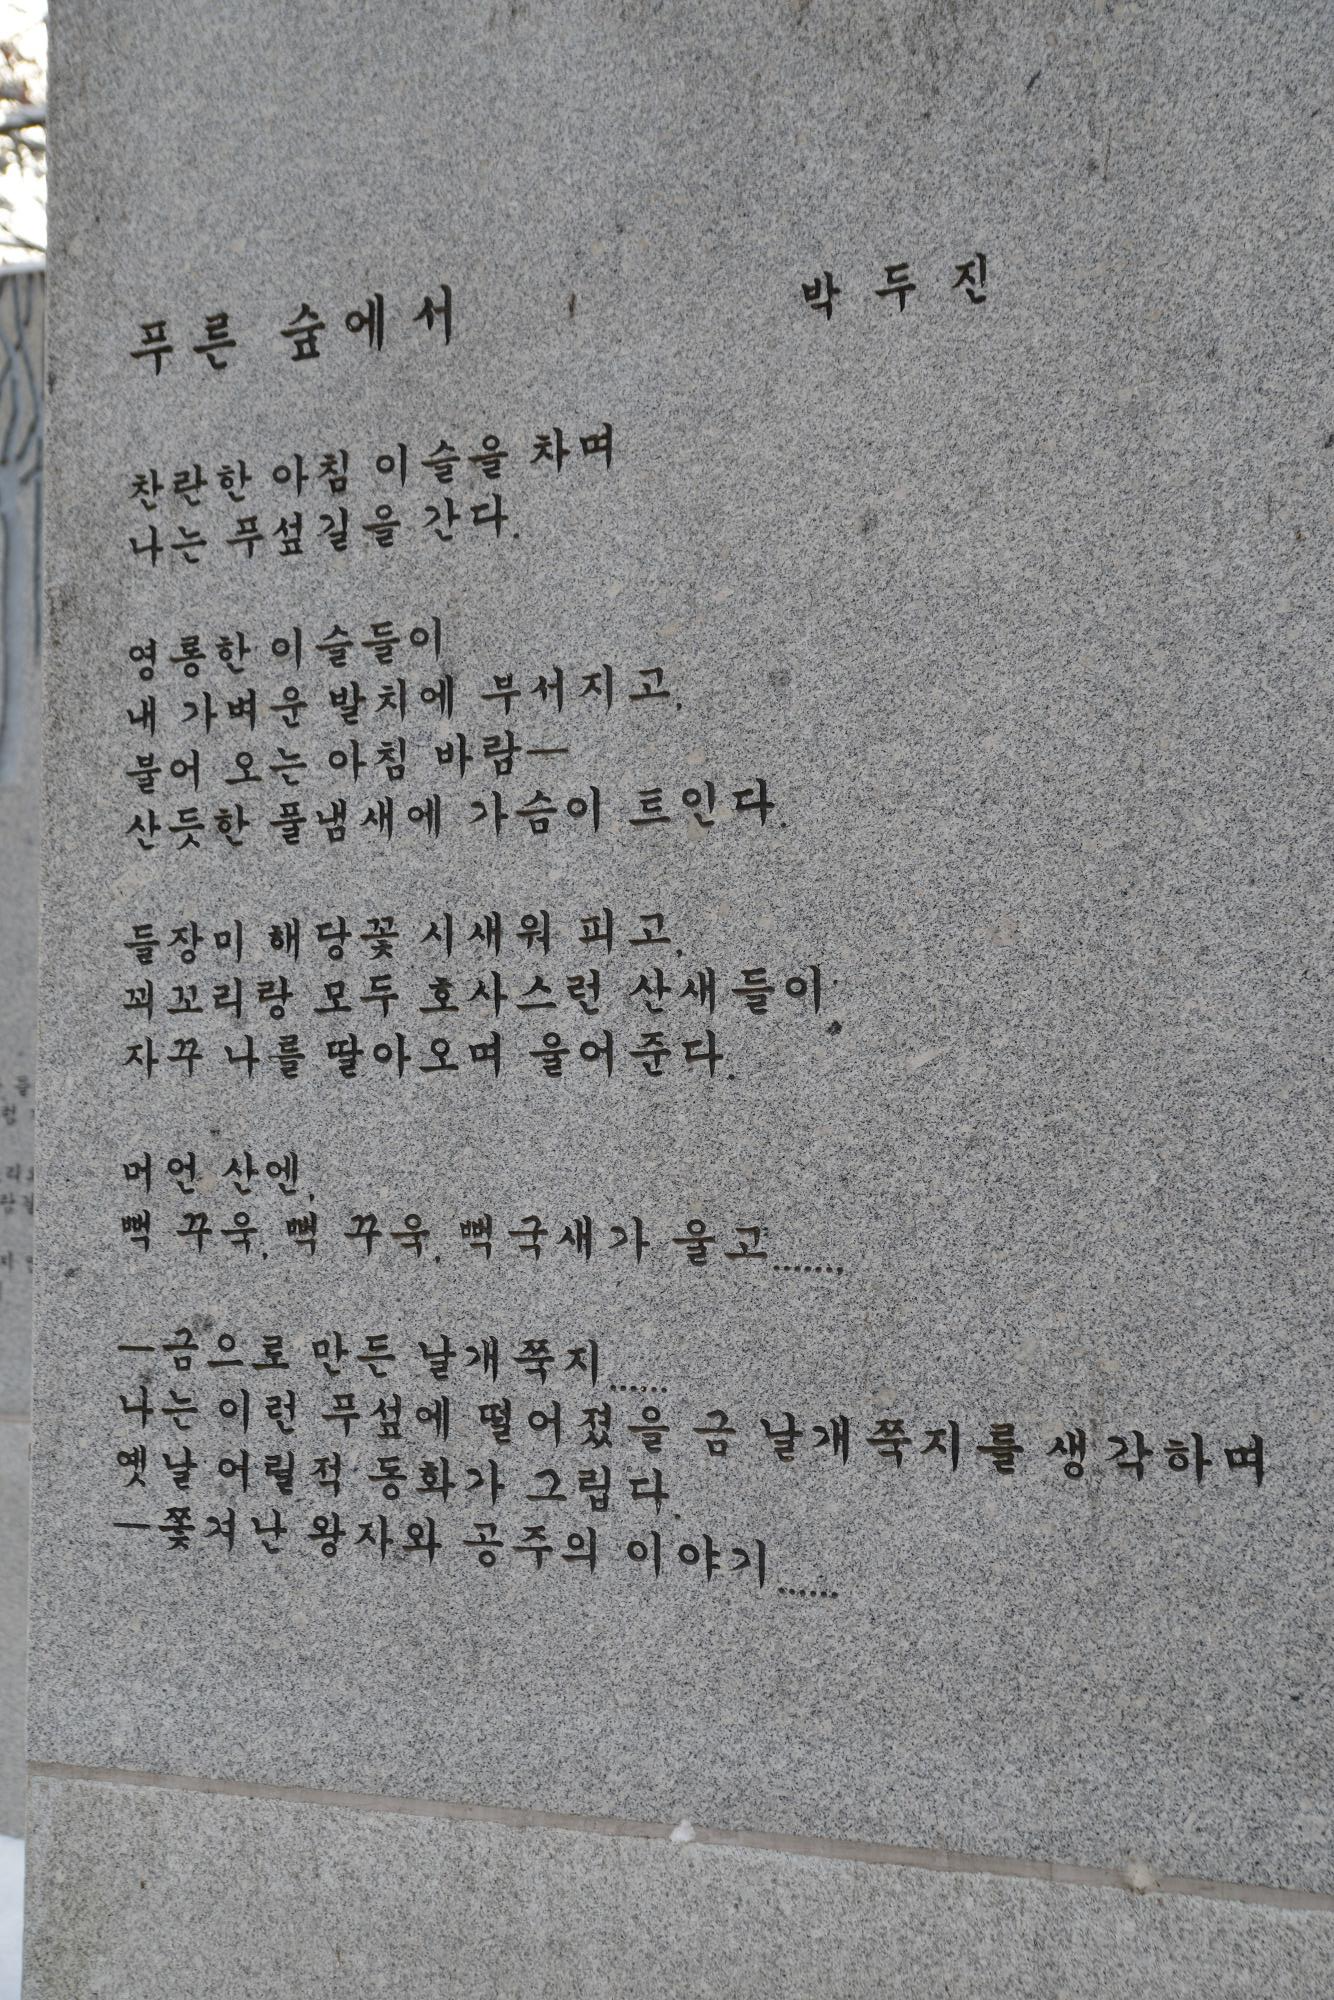 푸른 숲에서
박두진
찬란한 아침 이슬을 차며
나는 푸섶길을 간다.
영롱한 이슬들이
내 가벼운 발치에 부서지고,
불어 오는 아침 바람—
산듯한 풀냄새에 가슴이 트인다.
들장미 해당꽃 시새워 피고,
꾀꼬리랑 모두 호사스런 산새들이,
자꾸 나를 딸아오며 울어준다.
머언 산엔,
뻑 꾸욱, 뻑 꾸욱, 뻑국새가 울고.......
—금으로 만든 날개쭉지......
나는 이런 푸섶에 떨어졌을 금 날개쭉지를 생각하며
옛날 어릴적 동화가 그립다.
—쫓겨난 왕자와 공주의 이야기......